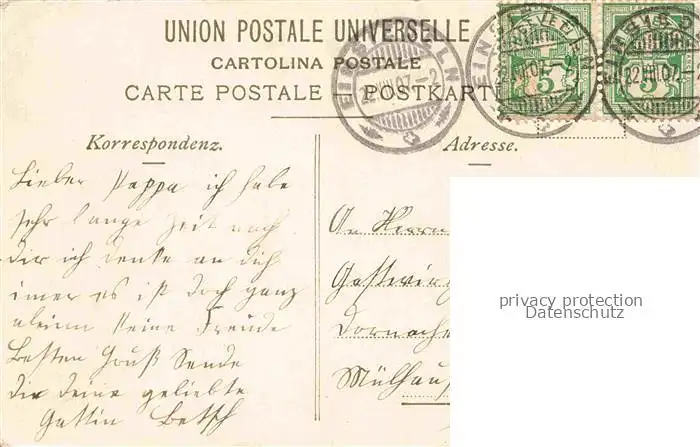 UNION POSTALE UNIVERSELLE
CARTOLINA POSTALE
CARTE POSTALE — POSTKARTE
EINSIEDELN
22.VIII.07.–2
EINSIEDELN
22.VIII.07.–2
EINSIEDELN
22.VIII.07.–2
5 5
Korrespondenz.
Adresse.
Lieber Pappa ich habe
sehr lange Zeit nach
dir ich denke an dich
imer es ist doch ganz
allein keine Freude
Besten Gruß Sende
dir deine geliebte
Gattin
An Herrn
Gastwir
Dornache
Mülhaus
privacy protection
Datenschutz